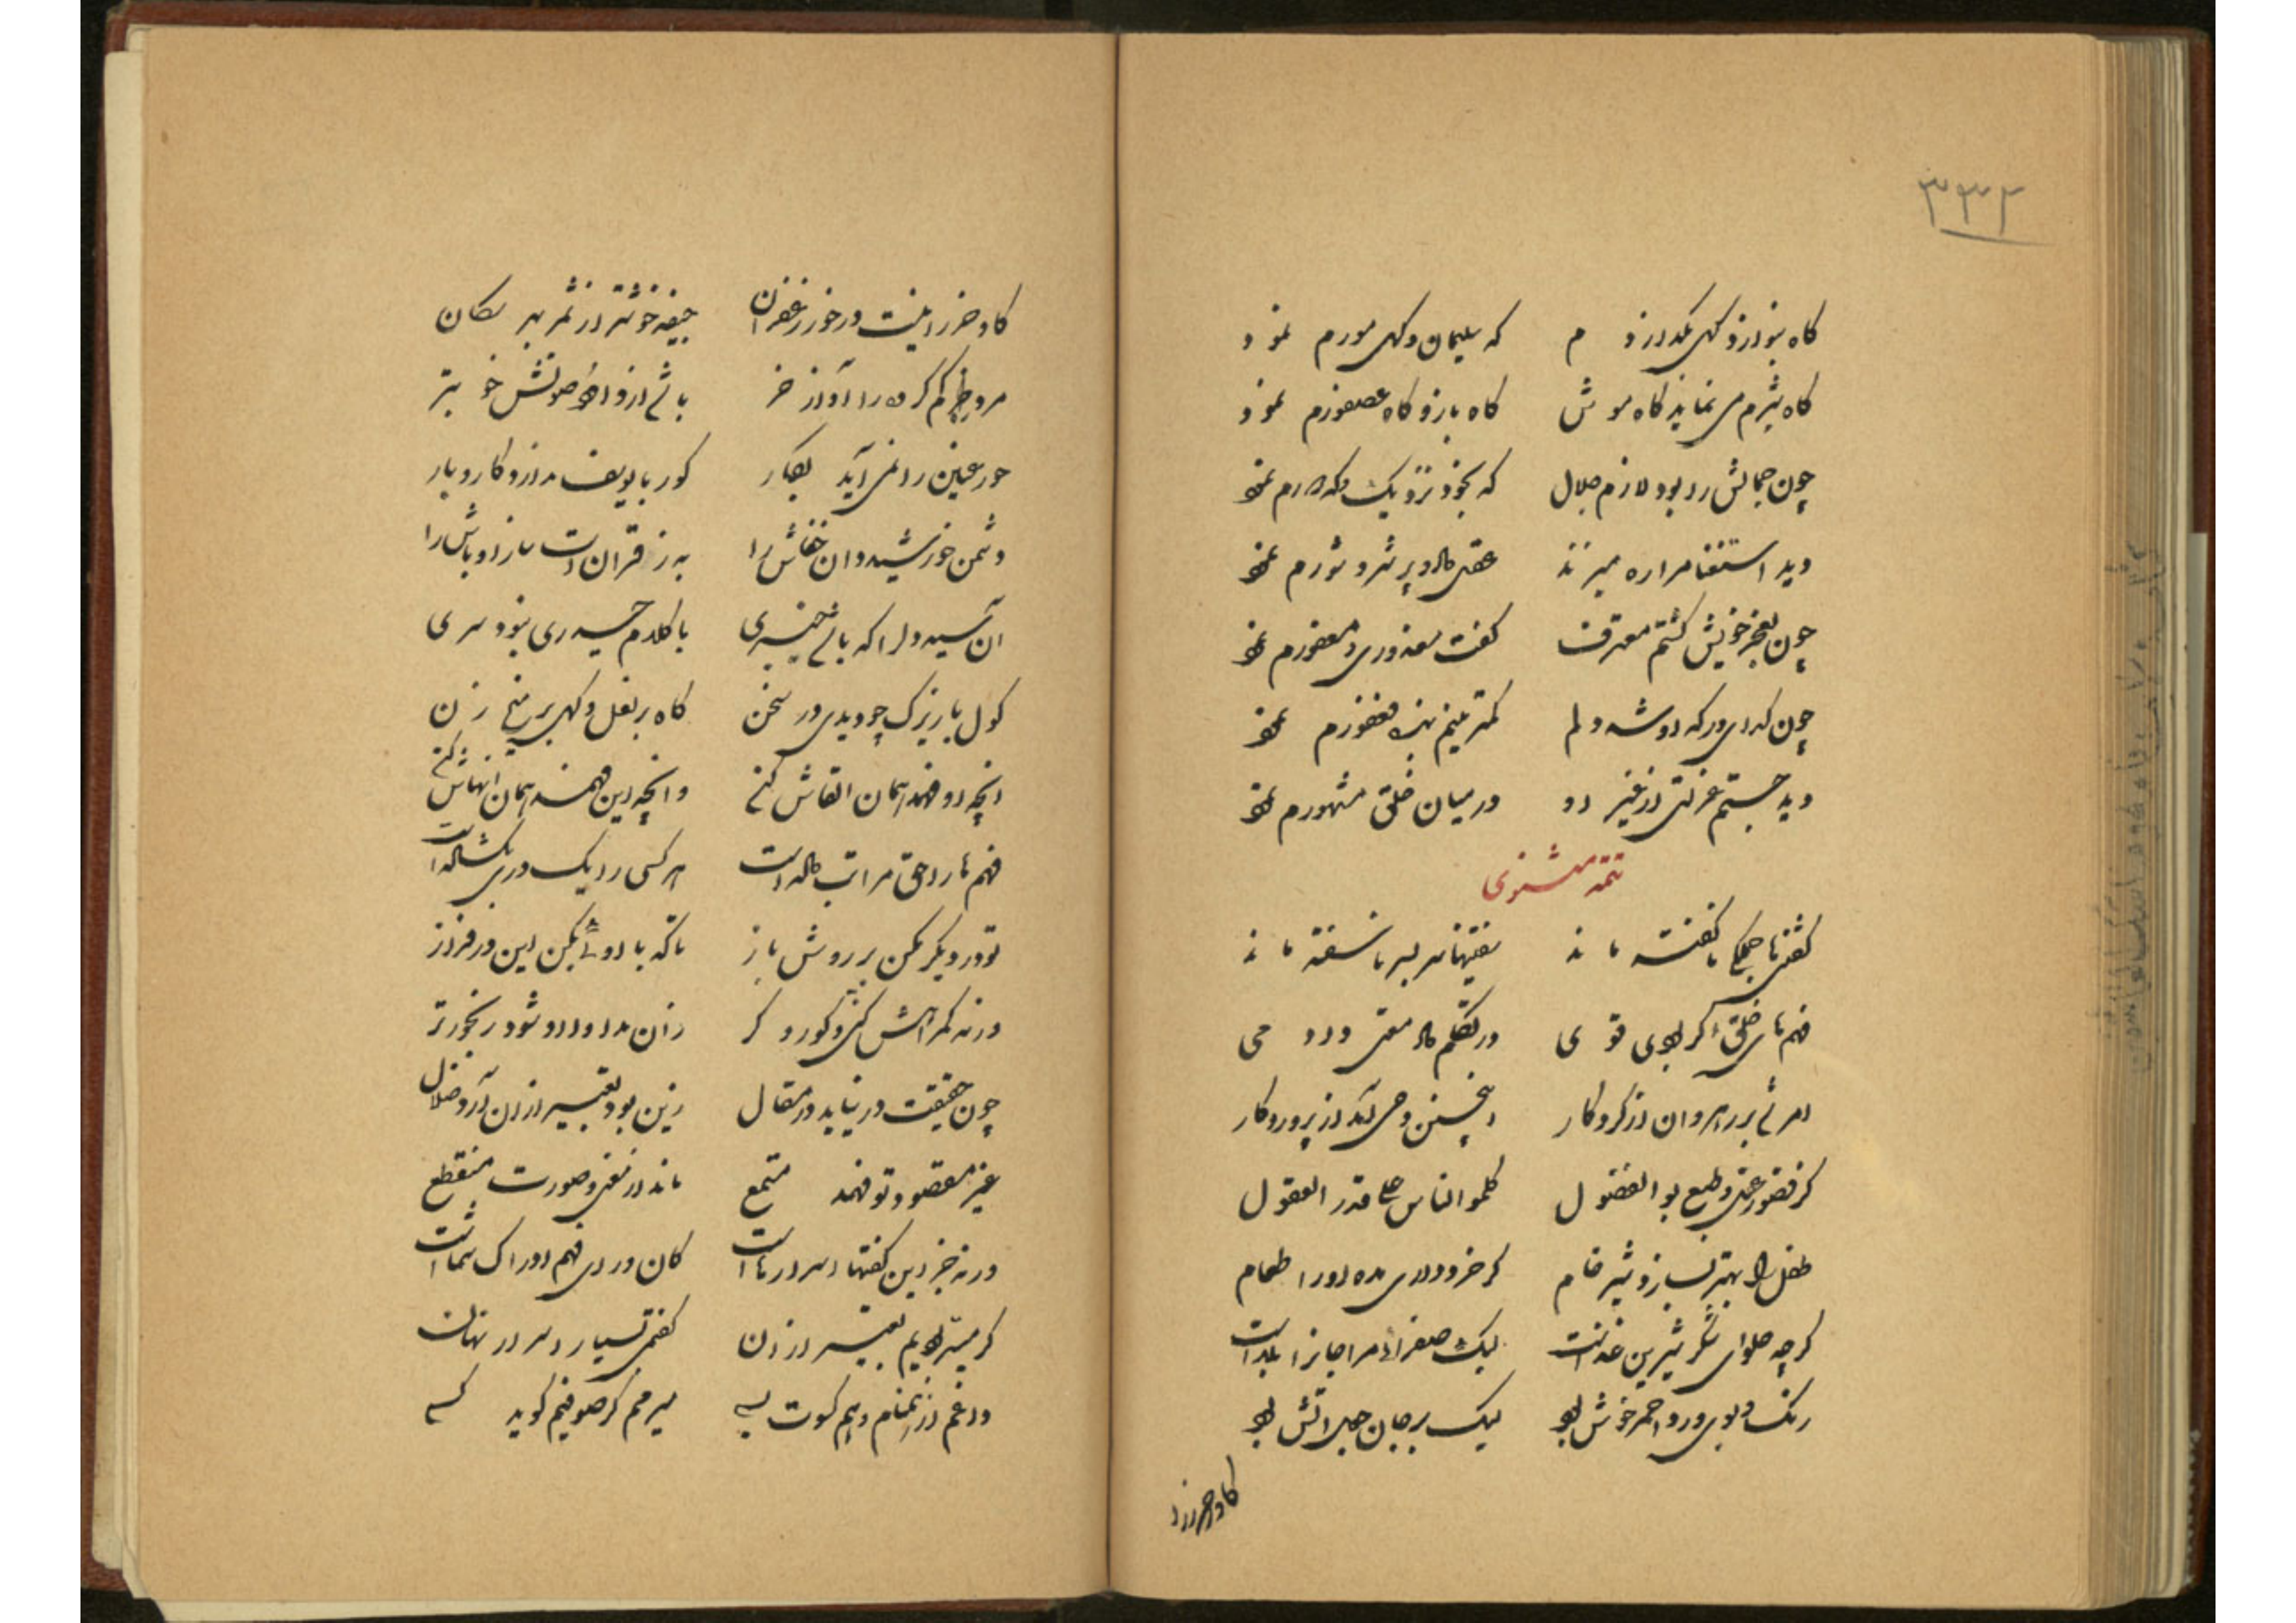 ۳۳۲
گاه بنوازد گهی بگدازدم که سلیمان و گهی مورم نمود
گاه شیرم می نماید گاه موش گاه باز و گاه عصفورم نمود
چون جمالش را بود لازم جلال که بخود نزدیک و که دورم نمود
دید استغنا مرا ره میزند عقل کل و پر شر و شورم نمود
چون بعجز خویش گشتم معترف گفت معذوری و مغفورم نمود
چون گدای درگه او شد دلم
دید جستم عزلتی از غیر او در میان خلق مشهورم نمود
تتمه مثنوی
گفتنیها جملگی ناگفته ماند سفتنیها سر بسر ناسفته ماند
فهم های خلق اگر بودی قوی در تکلم داد معنی دادمی
امر شد بر رهروان از کردگار اینچنین وحی آمد از پروردگار
کز قصور عقل و طبع بوالفضول کلموا الناس علی قدر العقول
طفل را بهتر بسازد شیر خام گر خرد داری مده او را طعام
گرچه حلوای شکر شیرین غذاست لیک صفرائی مزاجانرا بلاست
رنگ و بوی ورد احمر خوش بود لیک بر جان جعل آتش بود
گاو خر را
گاو خر را نیست در خور زعفران جیفه خوشتر از ثمر بهر سگان
مرد خر گم کرده را آواز خر باشد از داود صوتش خوبتر
حور عین را نمی آید بکار کور با یوسف ندارد کار و بار
دشمن خورشید دان خفاش را به ز قرآن است ساز اوباش را
آن سیه دل را که باشد خیبری با کلام حیدری نبود سری
گول بازیرک چو دیدی در سخن گاه بر نعل و گهی بر میخ زن
آنچه او فهمد همان القاش کنی وانچه این فهمد همان انهاش کنی
فهم ها را چون مراتب داده است هر کسی را یک دری بگشاده است
تو در دیگر مکن بر روش باز
ورنه گمراهش کنی و کور و کر زان مداوا او شود رنجورتر
چون حقیقت در نیاید در مقال زین بود تعبیر از آن آرد ضلال
غیر مقصود تو فهمد مستمع ماند از معنی و صورت منقطع
ورنه جز این گفتها اسرارهاست کان ورای فهم و ادراک شماست
گر میسر بودیم تعبیر از آن گفتمی بسیار اسرار نهان